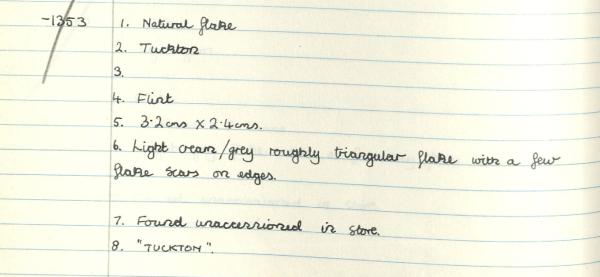 -1353 1. Natural flake
2. Tuckton
3.
4. Flint
5. 3.2cms X 2.4cms.
6. Light cream/grey roughly triangular flake with a few
flake scars on edges.
7. Found unaccessioned in store.
8. "TUCKTON".